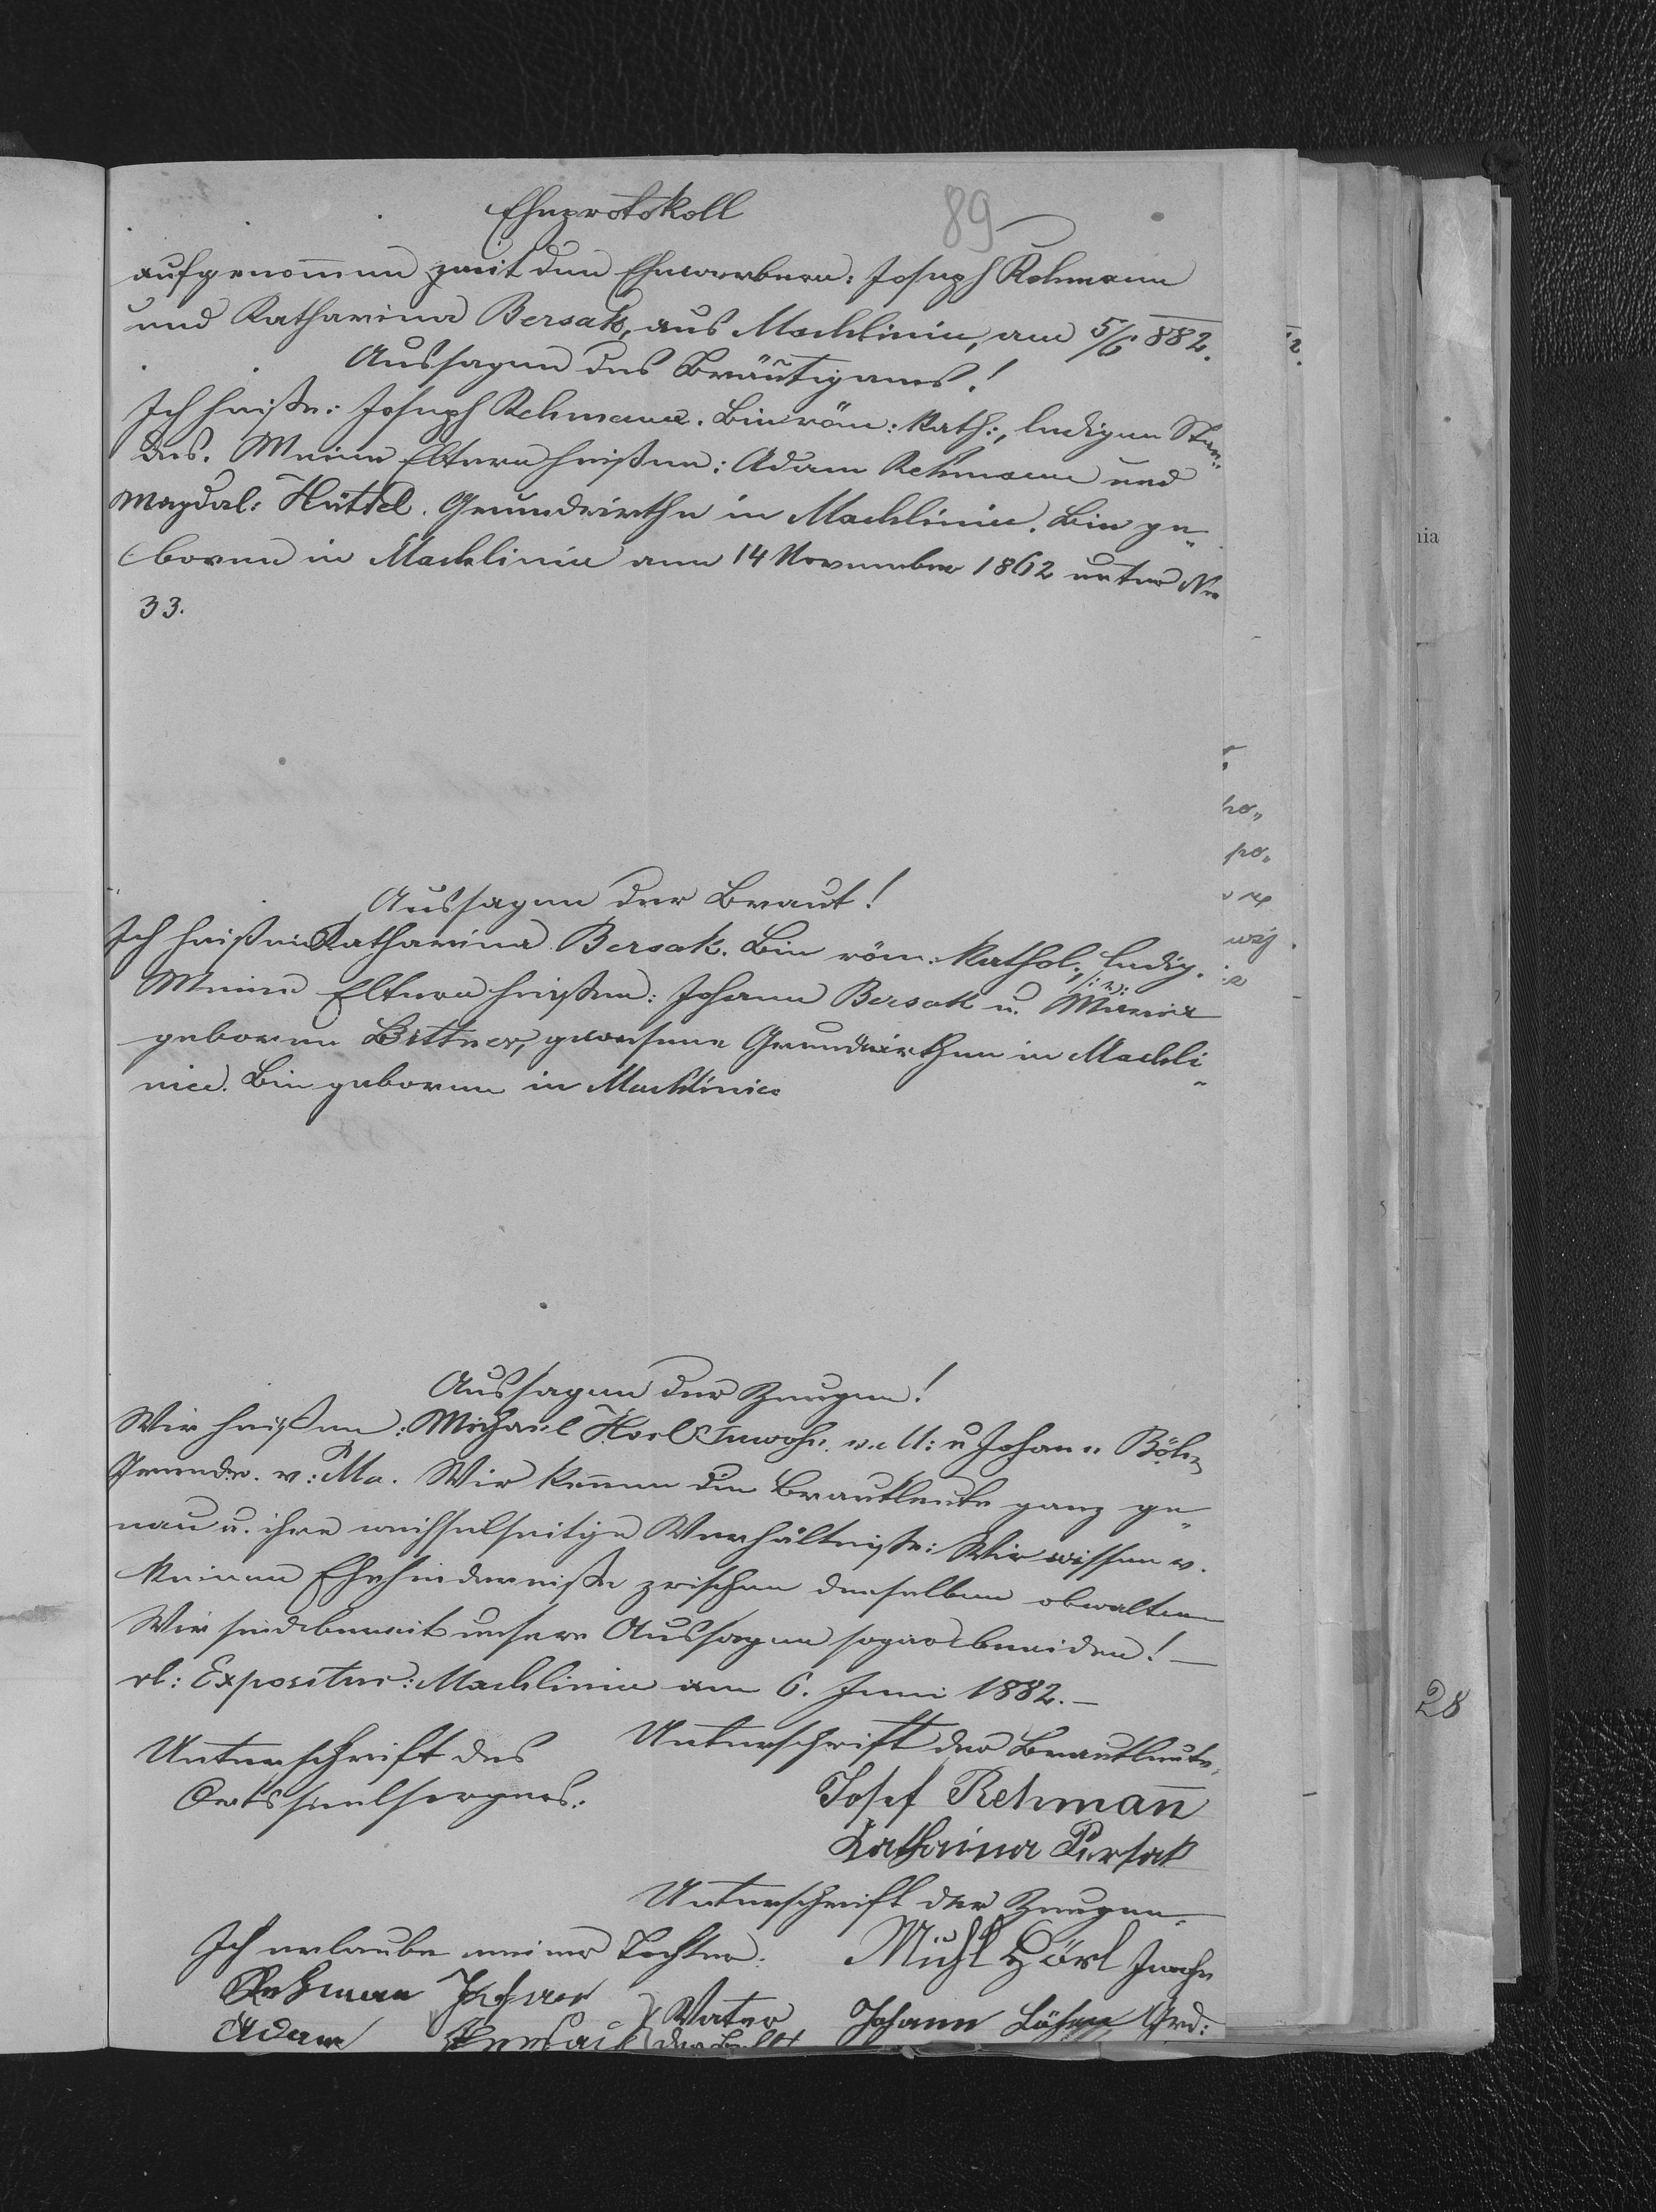 89
Eheprotokoll
aufgenommen mit den Ehewerbern: Joseph Rehmann
und Katharina Bersak, aus Machlinie, am 5/6 882.
Aussagen des Bräutigams!
Ich heiße: Joseph Rehmann. Bin röm: kath:, ledigen Stan„
des. Meine Eltern heißen: Adam Rehmann und
Magdal: Hüttel. Grundwirthe in Machlinie. Bin ge„
boren in Machlinie am 14 November 1862 unter Nro
33.
Aussagen der Braut!
Ich heiße Katharina Bersak. Bin röm: kathol:, ledig.
Meine Eltern heißen: Johann Bersak u. Maria
geborene Bittner, gewesene Grundwirthen in Machli„
nice. Bin geboren in Machlinice
Aussagen der Zeugen!
Wir heißen: Michael Horl Inwohn. u Johann
Grundw. v: Ma. Wir kennen die Brautleute ganz ge„
nau u. ihre wechselseitige Verhältniße: Wir wissen v.
keinem Ehehinderniße zwischen denselben obwalten
Wir sind bereit unsere Aussagen sogar beeiden! —
rl: Expositur: Machlinie am 6. Juni 1882. —
Unterschrift des
Ortsseelsorgers:
Unterschrift der Brautleute.
Josef Rehmann̄
Katharina Persak
Unterschrift der Zeugen.
Ich erlaube meiner Tochter:
Michl Hörl Inwohn
Rehman
Adam
Vater
Johann Grd:
nia
28